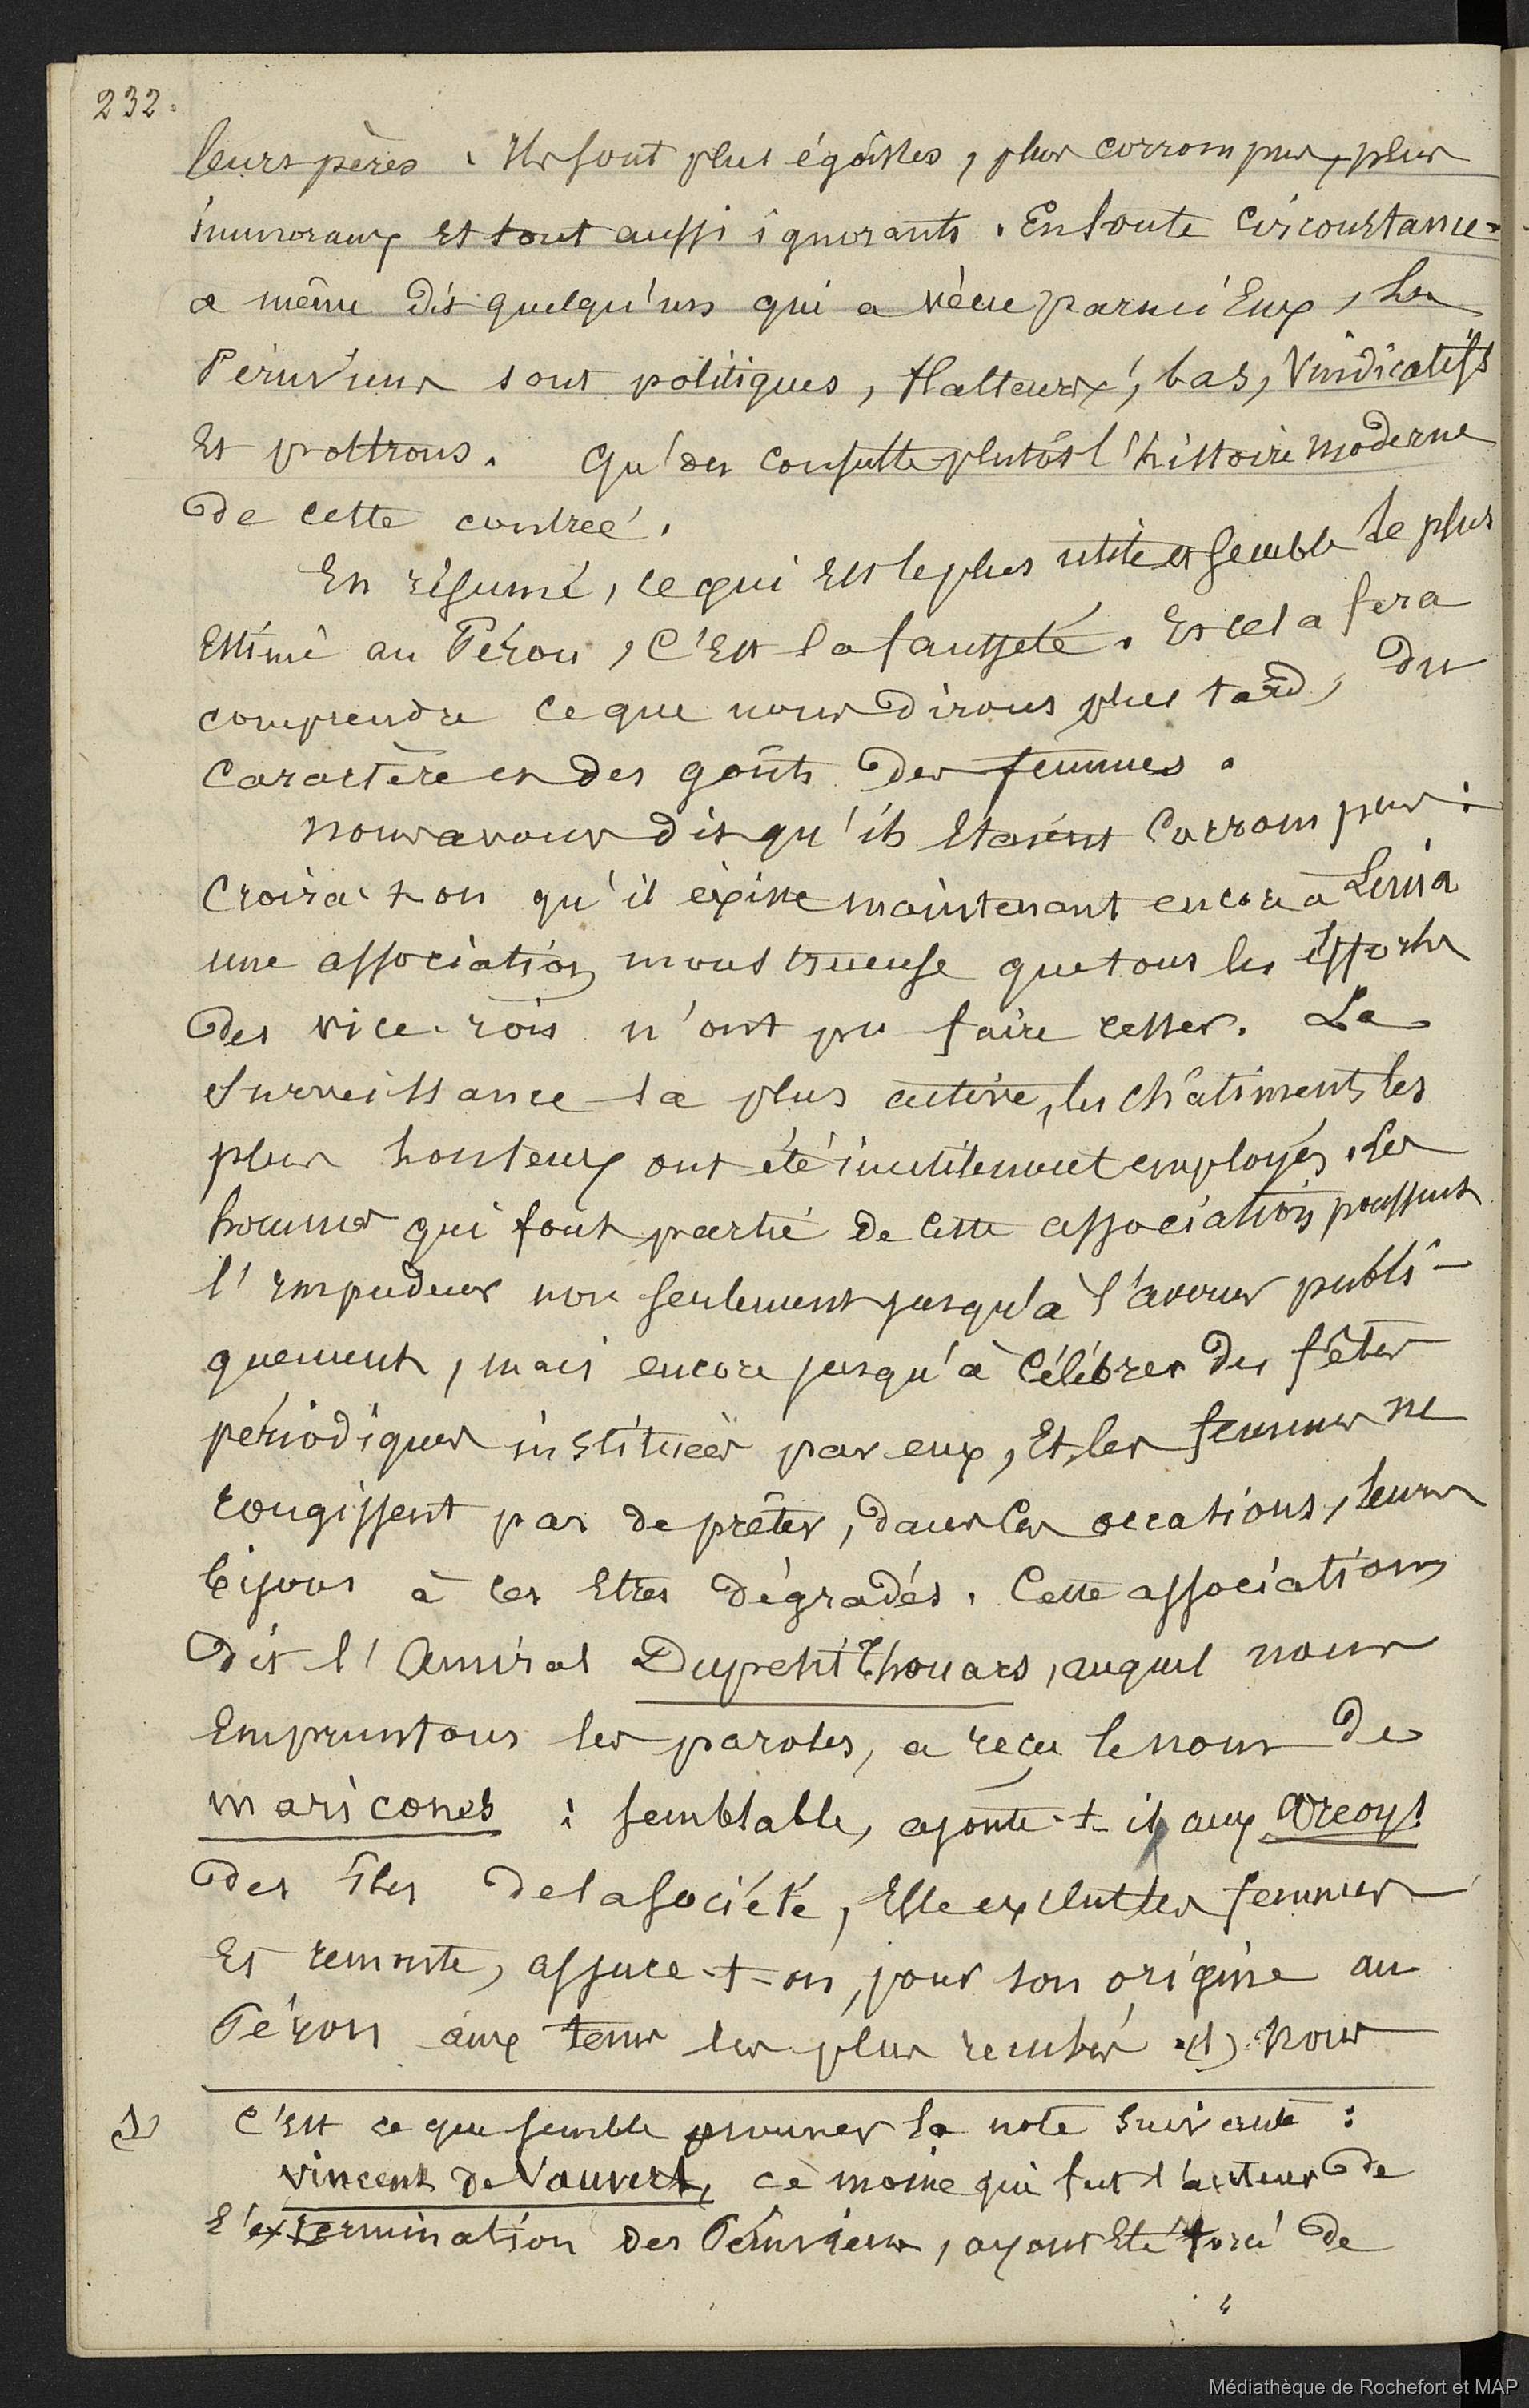 232.
leurs pères. Ils sont plus égoïstes, plus corrompus, plus
immoraux et tout aussi ignorants. En toute circonstance
a même dit quelqu'un qui a vécu parmi Eux, les
Péruviens sont politiques, flatteurs, bas, vindicatifs
Et poltrons. Qu'on consulte plutôt l'histoire moderne
De cette contrée.
En résumé, ce qui Est le plus utile et semble le plus
Estimé au Pérou, C'Est la fausseté. Et cela fera
comprendre ce que nous Dirons plus tard, Du
Caractère et Des goûts Des femmes.
Nous avons dit qu'ils Etaient Corrompus :
Croira-t-on qu'il existe maintenant encore à Lima
une association monstrueuse que tous les Efforts
Des vice-rois n'ont pu faire cesser. La
surveillance la plus active, les châtiments les
plus honteux ont été inutilement employés. Les
hommes qui font partie de cette association poussent
l'impudeur non seulement jusqu'à l'avouer publi-
quement, mais encore jusqu'à Célébrer Des fêtes
périodiques instituées par eux, Et les femmes ne
rougissent pas de prêter, dans ces occasions, leurs
bijoux à ces Etres Dégradés. Cette association
Dit l'Amiral Dupetit Thouars, auquel nous
Empruntons les paroles, a reçu le nom De
maricones : semblable, ajoute-t-il, aux Areoys
Des îles De la Société, Elle exclut les femmes
Et remonte, assure-t-on, pour son origine au
Pérou aux tems les plus reculés (1). Nous
(1) C'Est ce que semble prouver la note suivante :
Vincent De Vauvert, ce moine qui fut l'auteur De
l'extermination Des Péruviens, ayant Eté forcé De